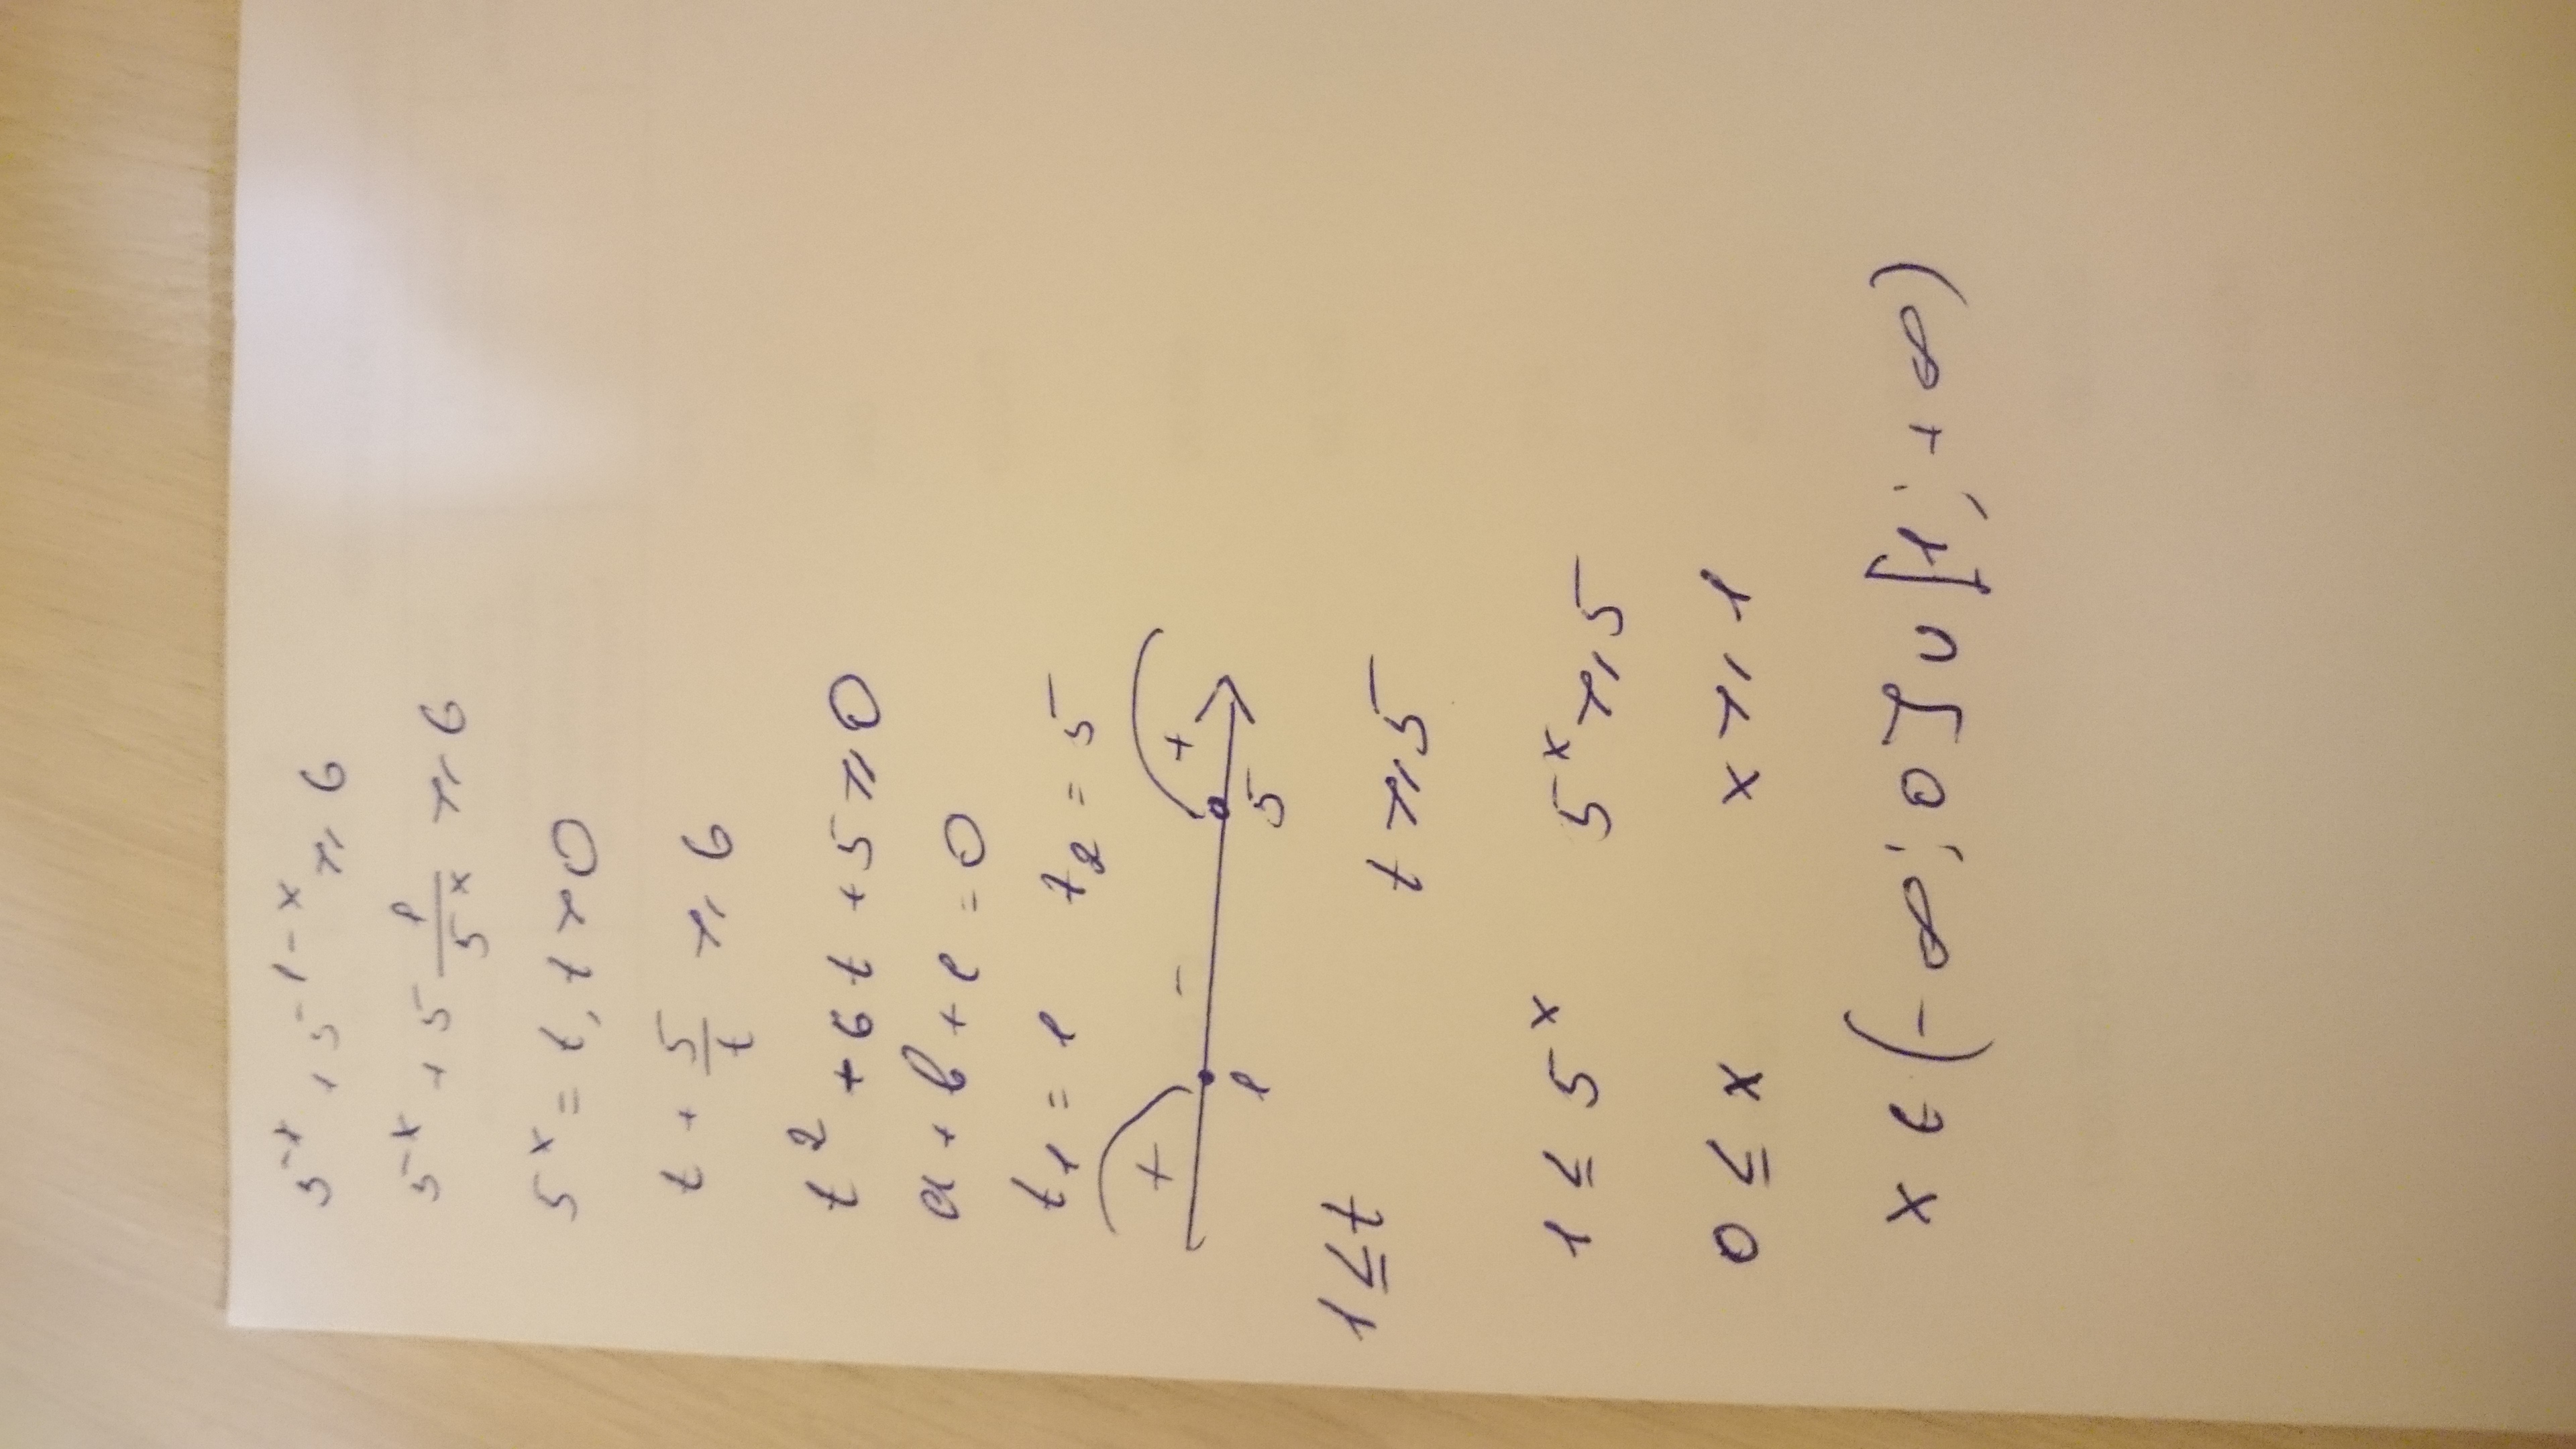 5^x + 5^{1-x} ⩾ 6
5^x + 5 \frac{1}{5^x} ⩾ 6
5^x = t, t > 0
t + \frac{5}{t} ⩾ 6
t^2 + 6t + 5 ⩾ 0
a + b + c = 0
t_1 = 1 t_2 = 5
+ - +
1 5
1 ≤ t t ⩾ 5
1 ≤ 5^x 5^x ⩾ 5
0 ≤ x x ⩾ 1
x ∈ (-∞; 0] ∪ [1; +∞)